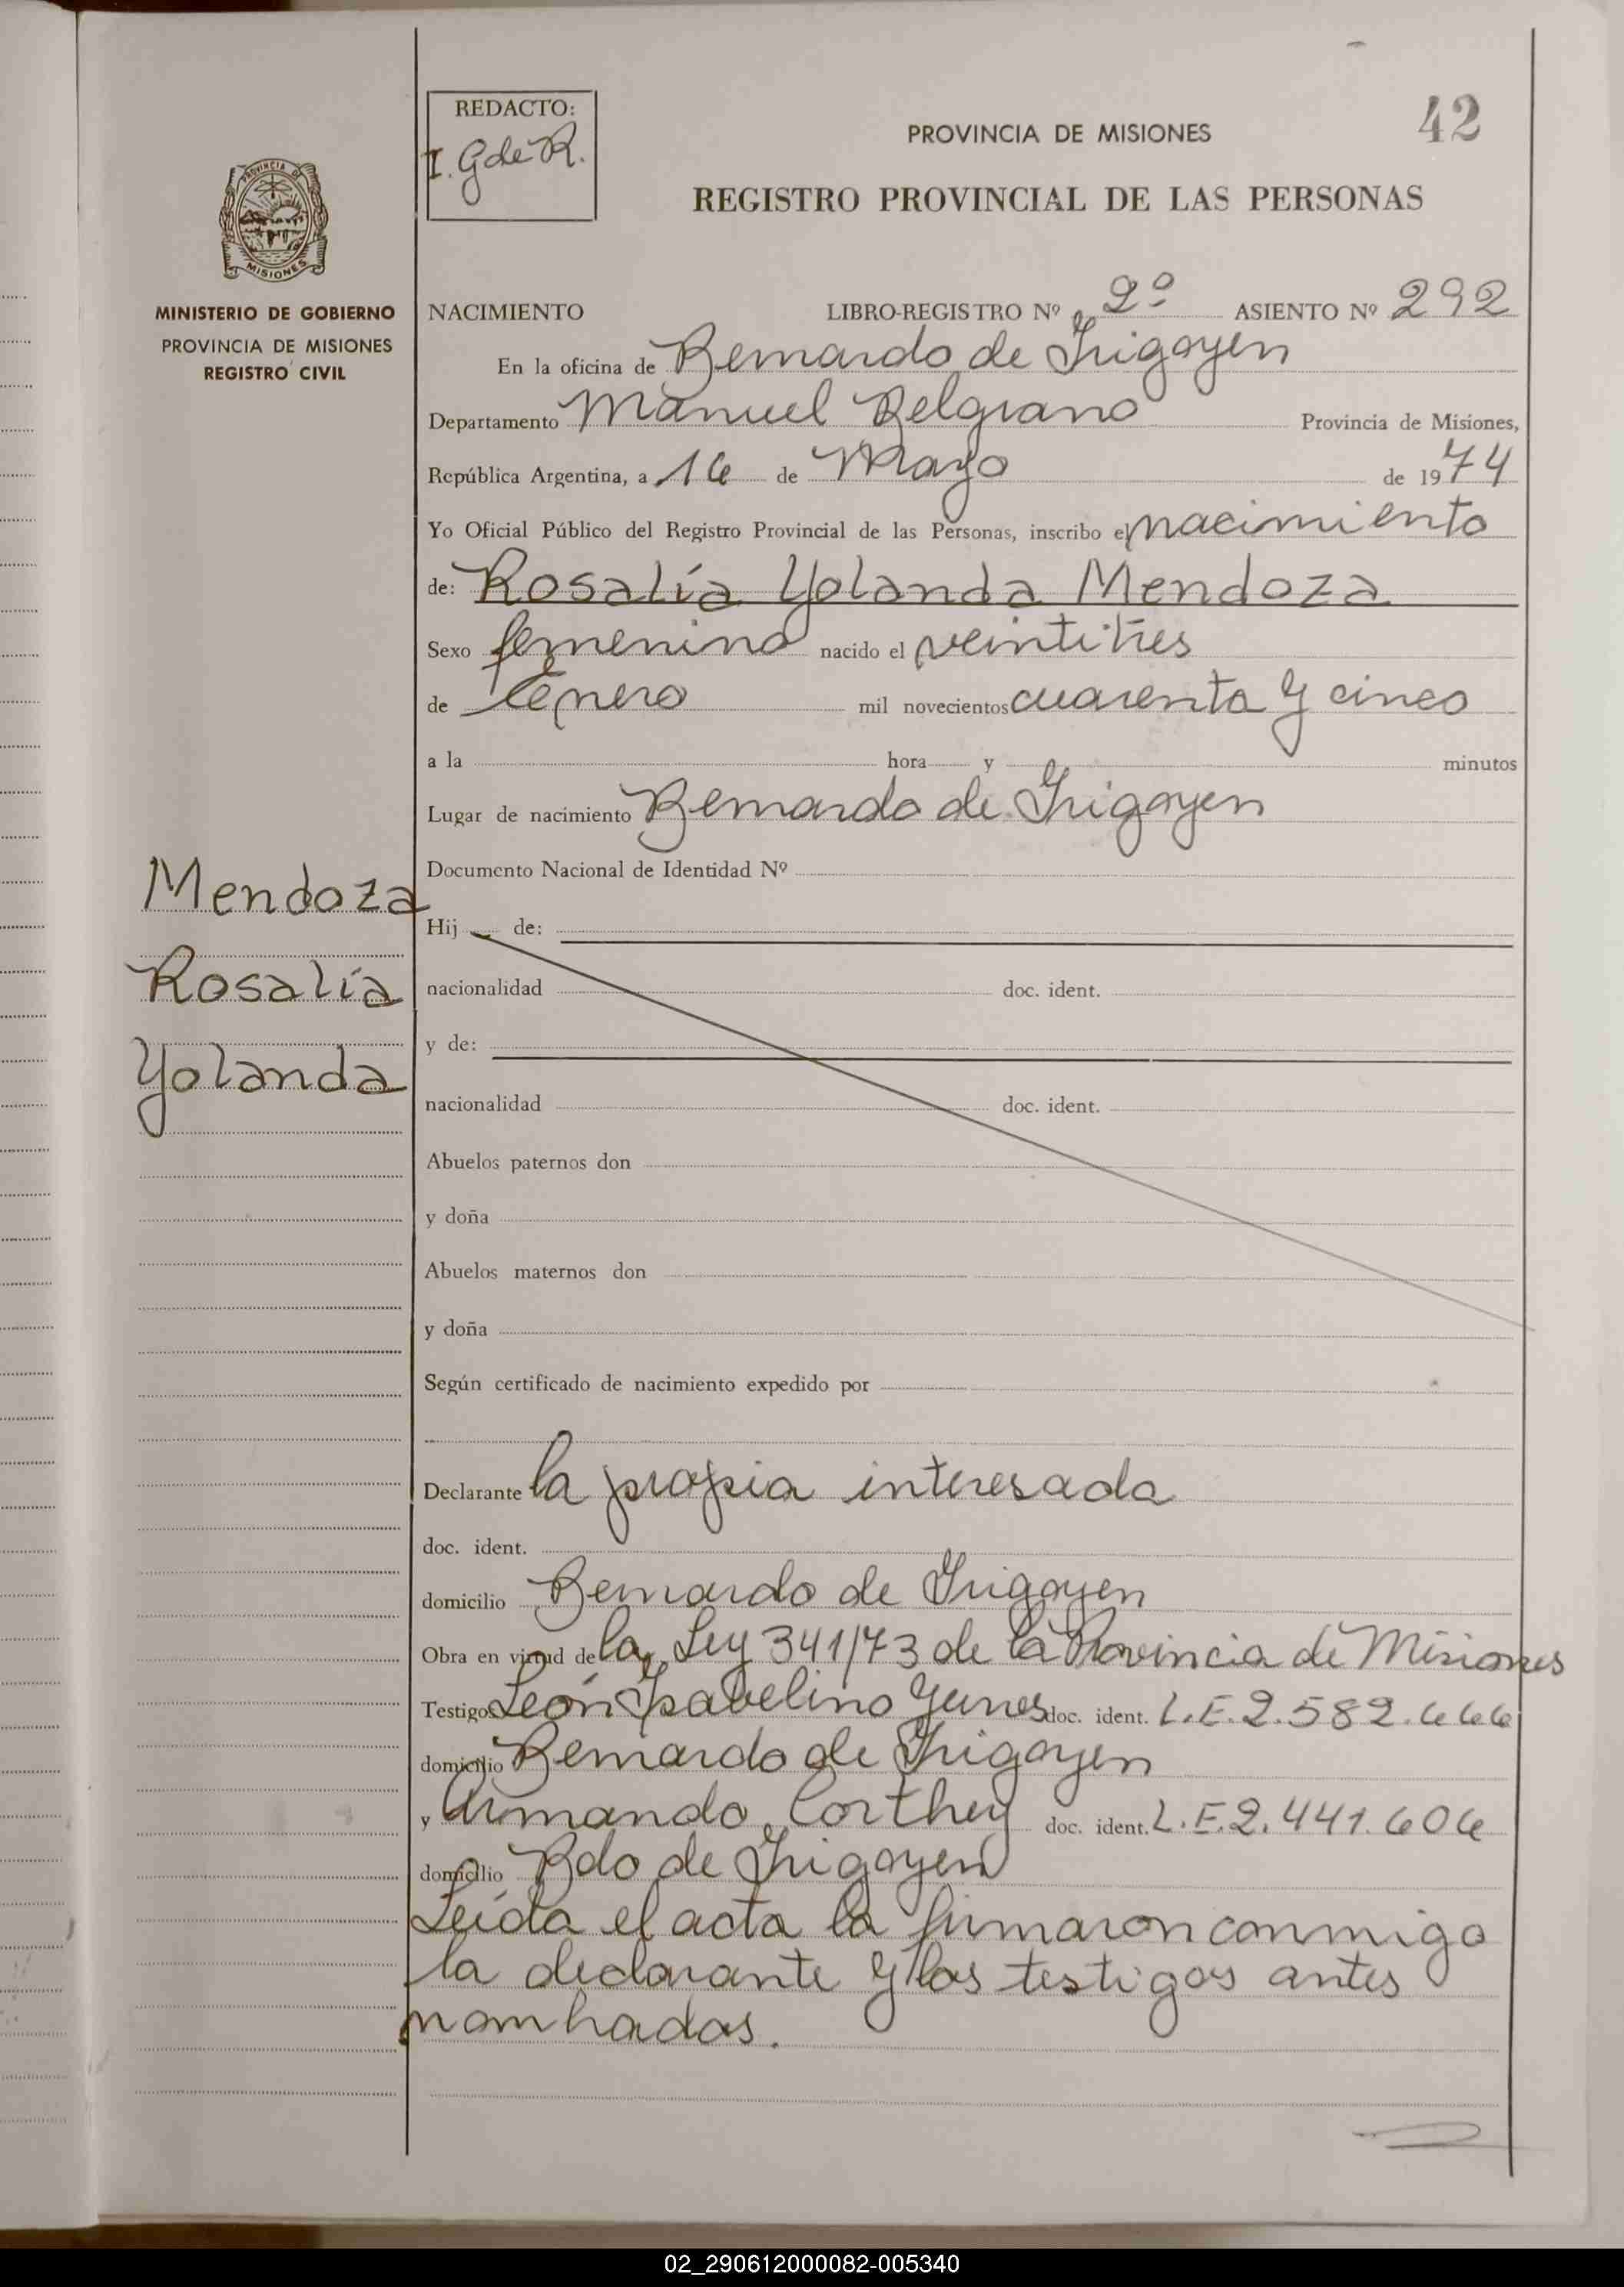 42
REDACTO:
I. G de R.
PROVINCIA DE MISIONES
REGISTRO PROVINCIAL DE LAS PERSONAS
PROVINCIA DE
MISIONES
MINISTERIO DE GOBIERNO
PROVINCIA DE MISIONES
REGISTRO CIVIL
NACIMIENTO LIBRO-REGISTRO Nº 2º ASIENTO Nº 292
En la oficina de Bernardo de Irigoyen
Departamento Manuel Belgrano Provincia de Misiones,
República Argentina, a 16 de Mayo de 1974
Yo Oficial Público del Registro Provincial de las Personas, inscribo el nacimiento
de: Rosalía Yolanda Mendoza
Sexo femenino nacido el veintitres
de Enero mil novecientos cuarenta y cinco
a la hora y minutos
Lugar de nacimiento Bernardo de Irigoyen
Documento Nacional de Identidad Nº
Mendoza
Rosalía
Yolanda
Hij de:
nacionalidad doc. ident.
y de:
nacionalidad doc. ident.
Abuelos paternos don
y doña
Abuelos maternos don
y doña
Según certificado de nacimiento expedido por
Declarante la propia interesada
doc. ident.
domicilio Bernardo de Irigoyen
Obra en virtud de la Ley 341/73 de la Provincia de Misiones
Testigos León Isabelino Yunes doc. ident. L.E.2.582.666
domicilio Bernardo de Irigoyen
y Armando Corthey doc. ident. L.E.2.441.606
domicilio Bdo de Irigoyen
Leída el acta la firmaron conmigo
la declarante y los testigos antes
nombrados.
02_290612000082-005340